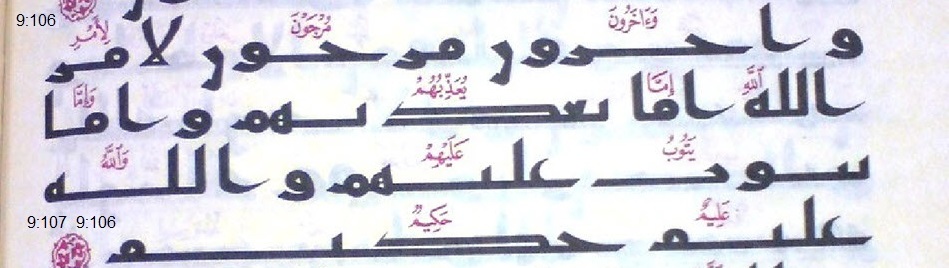 9:106
وَءَاخَرُونَ مُرْجَوْنَ لِأَمْرِ
واخرون مرجون لامر
ٱللَّهِ إِمَّا يُعَذِّبُهُمْ وَإِمَّا
الله اما يعذبهم واما
يَتُوبُ عَلَيْهِمْ وَٱللَّهُ
يتوب عليهم والله
9:107 9:106
عَلِيمٌ حَكِيمٌ
عليم حكيم